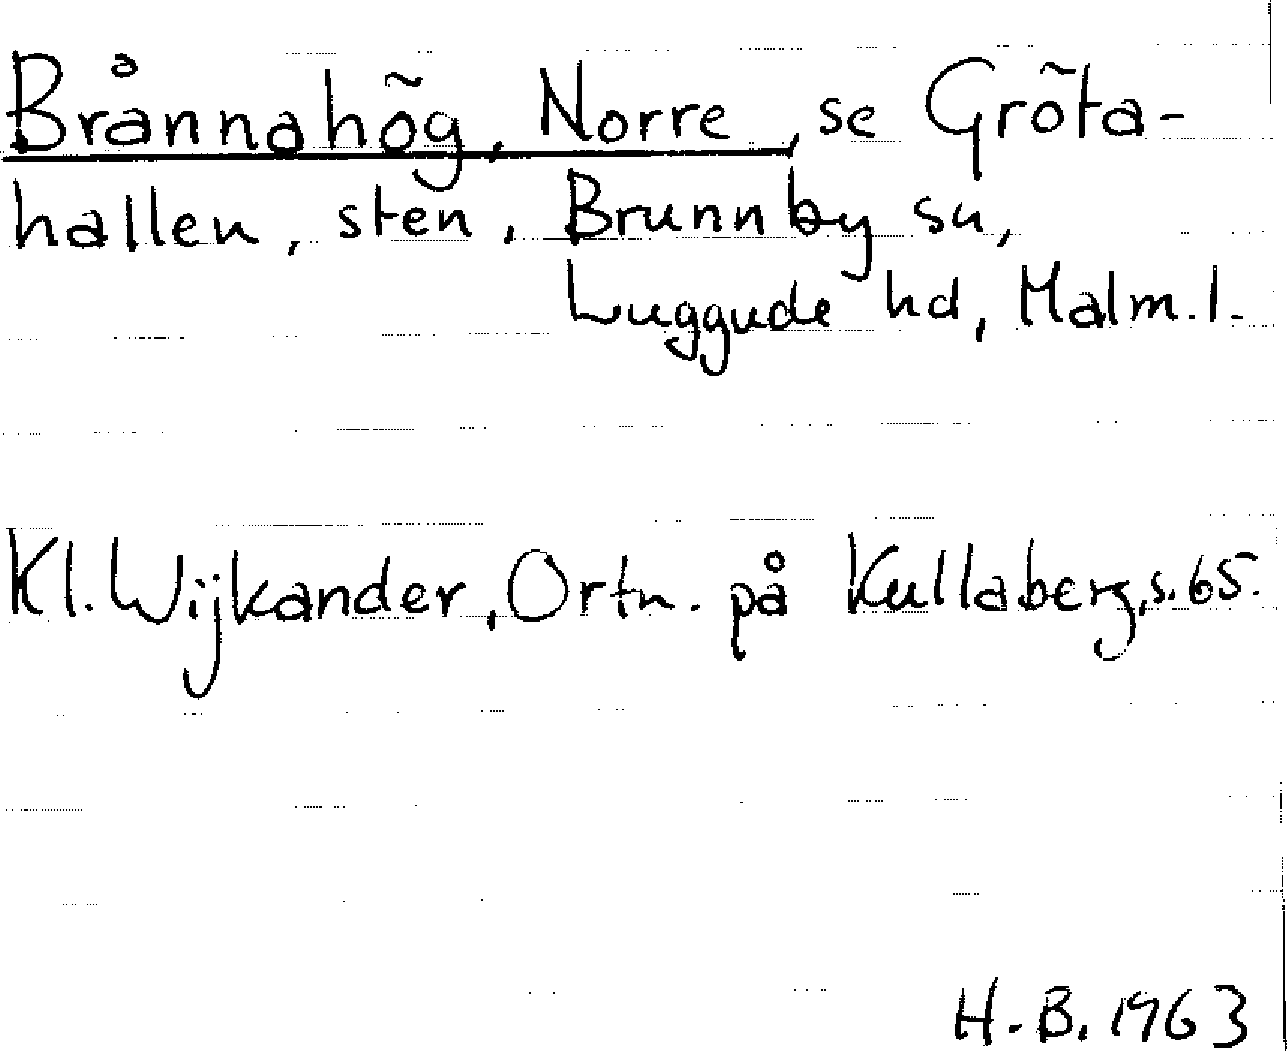 Brånnahög, Norre, se Gröta-
hallen, sten, Brunnby sn,
Luggude hd, Malm.l.
Kl. Wijkander, Ortn. på Kullaberg, s. 65.
H.B. 1963